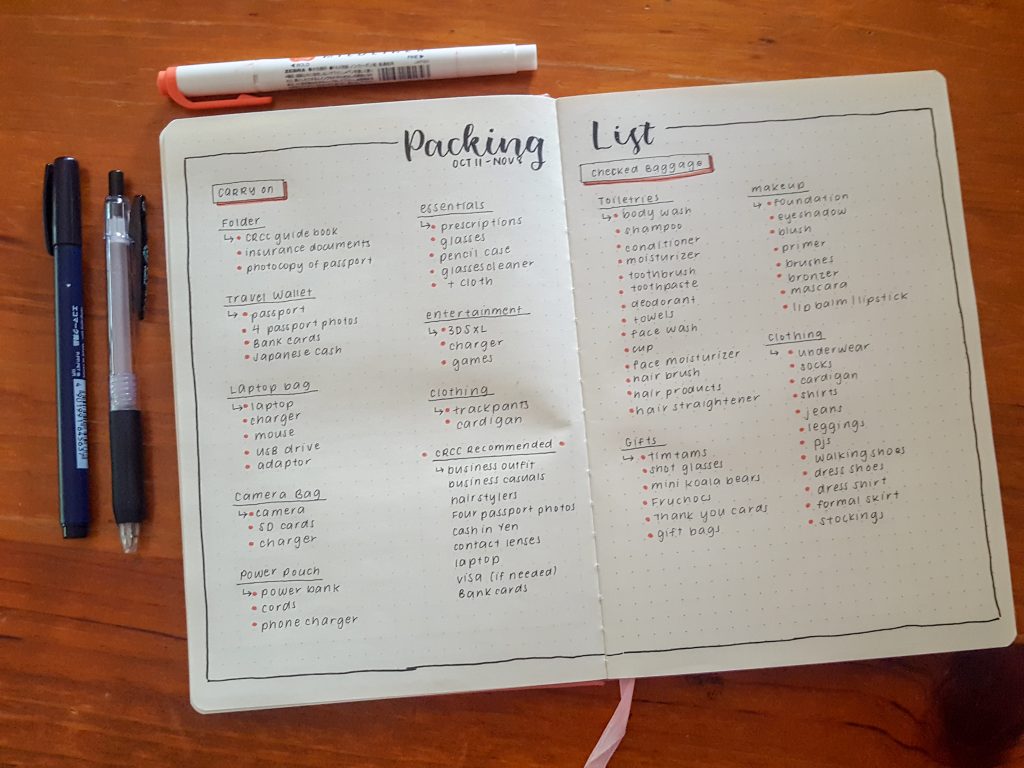 Packing List
OCT 11 - NOV
Carry on
Folder
CRCC guide book
insurance documents
photocopy of passport
Travel Wallet
passport
4 passport photos
Bank cards
Japanese cash
Laptop bag
laptop
charger
mouse
USB drive
adaptor
Camera Bag
camera
SD cards
charger
Power Pouch
power bank
cords
phone charger
essentials
prescriptions
glasses
pencil case
glasses cleaner
+ cloth
entertainment
3DS XL
charger
games
Clothing
trackpants
cardigan
CRCC Recommended
business outfit
business casuals
hairstylers
Four passport photos
cash in Yen
contact lenses
laptop
visa (if needed)
Bank cards
Checked Baggage
Toiletries
body wash
shampoo
conditioner
moisturizer
toothbrush
toothpaste
deodorant
towels
face wash
cup
face moisturizer
hair brush
hair products
hair straightener
Gifts
timtams
shot glasses
mini koala bears
Fruchocs
Thank you cards
gift bags
makeup
foundation
eyeshadow
blush
primer
brushes
bronzer
mascara
lip balm | lipstick
Clothing
underwear
socks
cardigan
shirts
jeans
leggings
pjs
walking shoes
dress shoes
dress shirt
formal skirt
stockings
ZEBRA
FINE